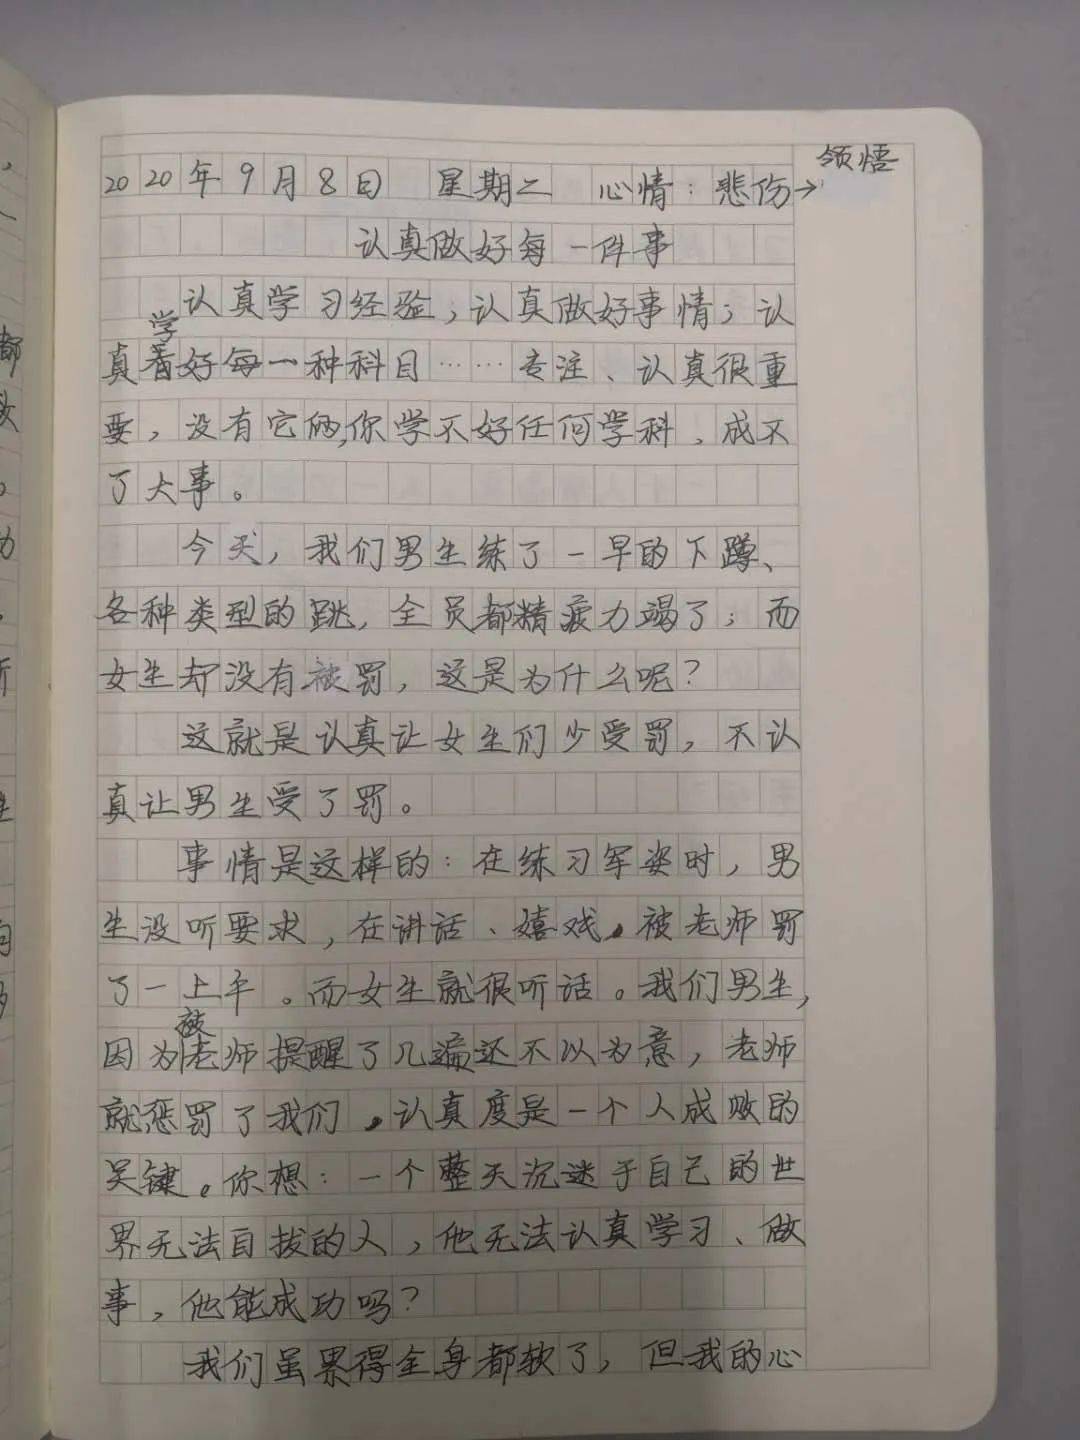 领悟
2020年9月8日 星期二 心情：悲伤→
认真做好每一件事
认真学习经验；认真做好事情；认
学
真看好每一种科目……专注、认真很重
要，没有它俩，你学不好任何学科，成不
了大事。
今天，我们男生练了一早的下蹲、
各种类型的跳，全员都精疲力竭了；而
女生却没有被罚，这是为什么呢？
这就是认真让女生们少受罚，不认
真让男生受了罚。
事情是这样的：在练习军姿时，男
生没听要求，在讲话、嬉戏，被老师罚
了一上午。而女生就很听话。我们男生，
被
因为老师提醒了几遍还不以为意，老师
就惩罚了我们，认真度是一个人成败的
关键。你想：一个整天沉迷于自己的世
界无法自拔的人，他无法认真学习、做
事，他能成功吗？
我们虽累得全身都软了，但我的心